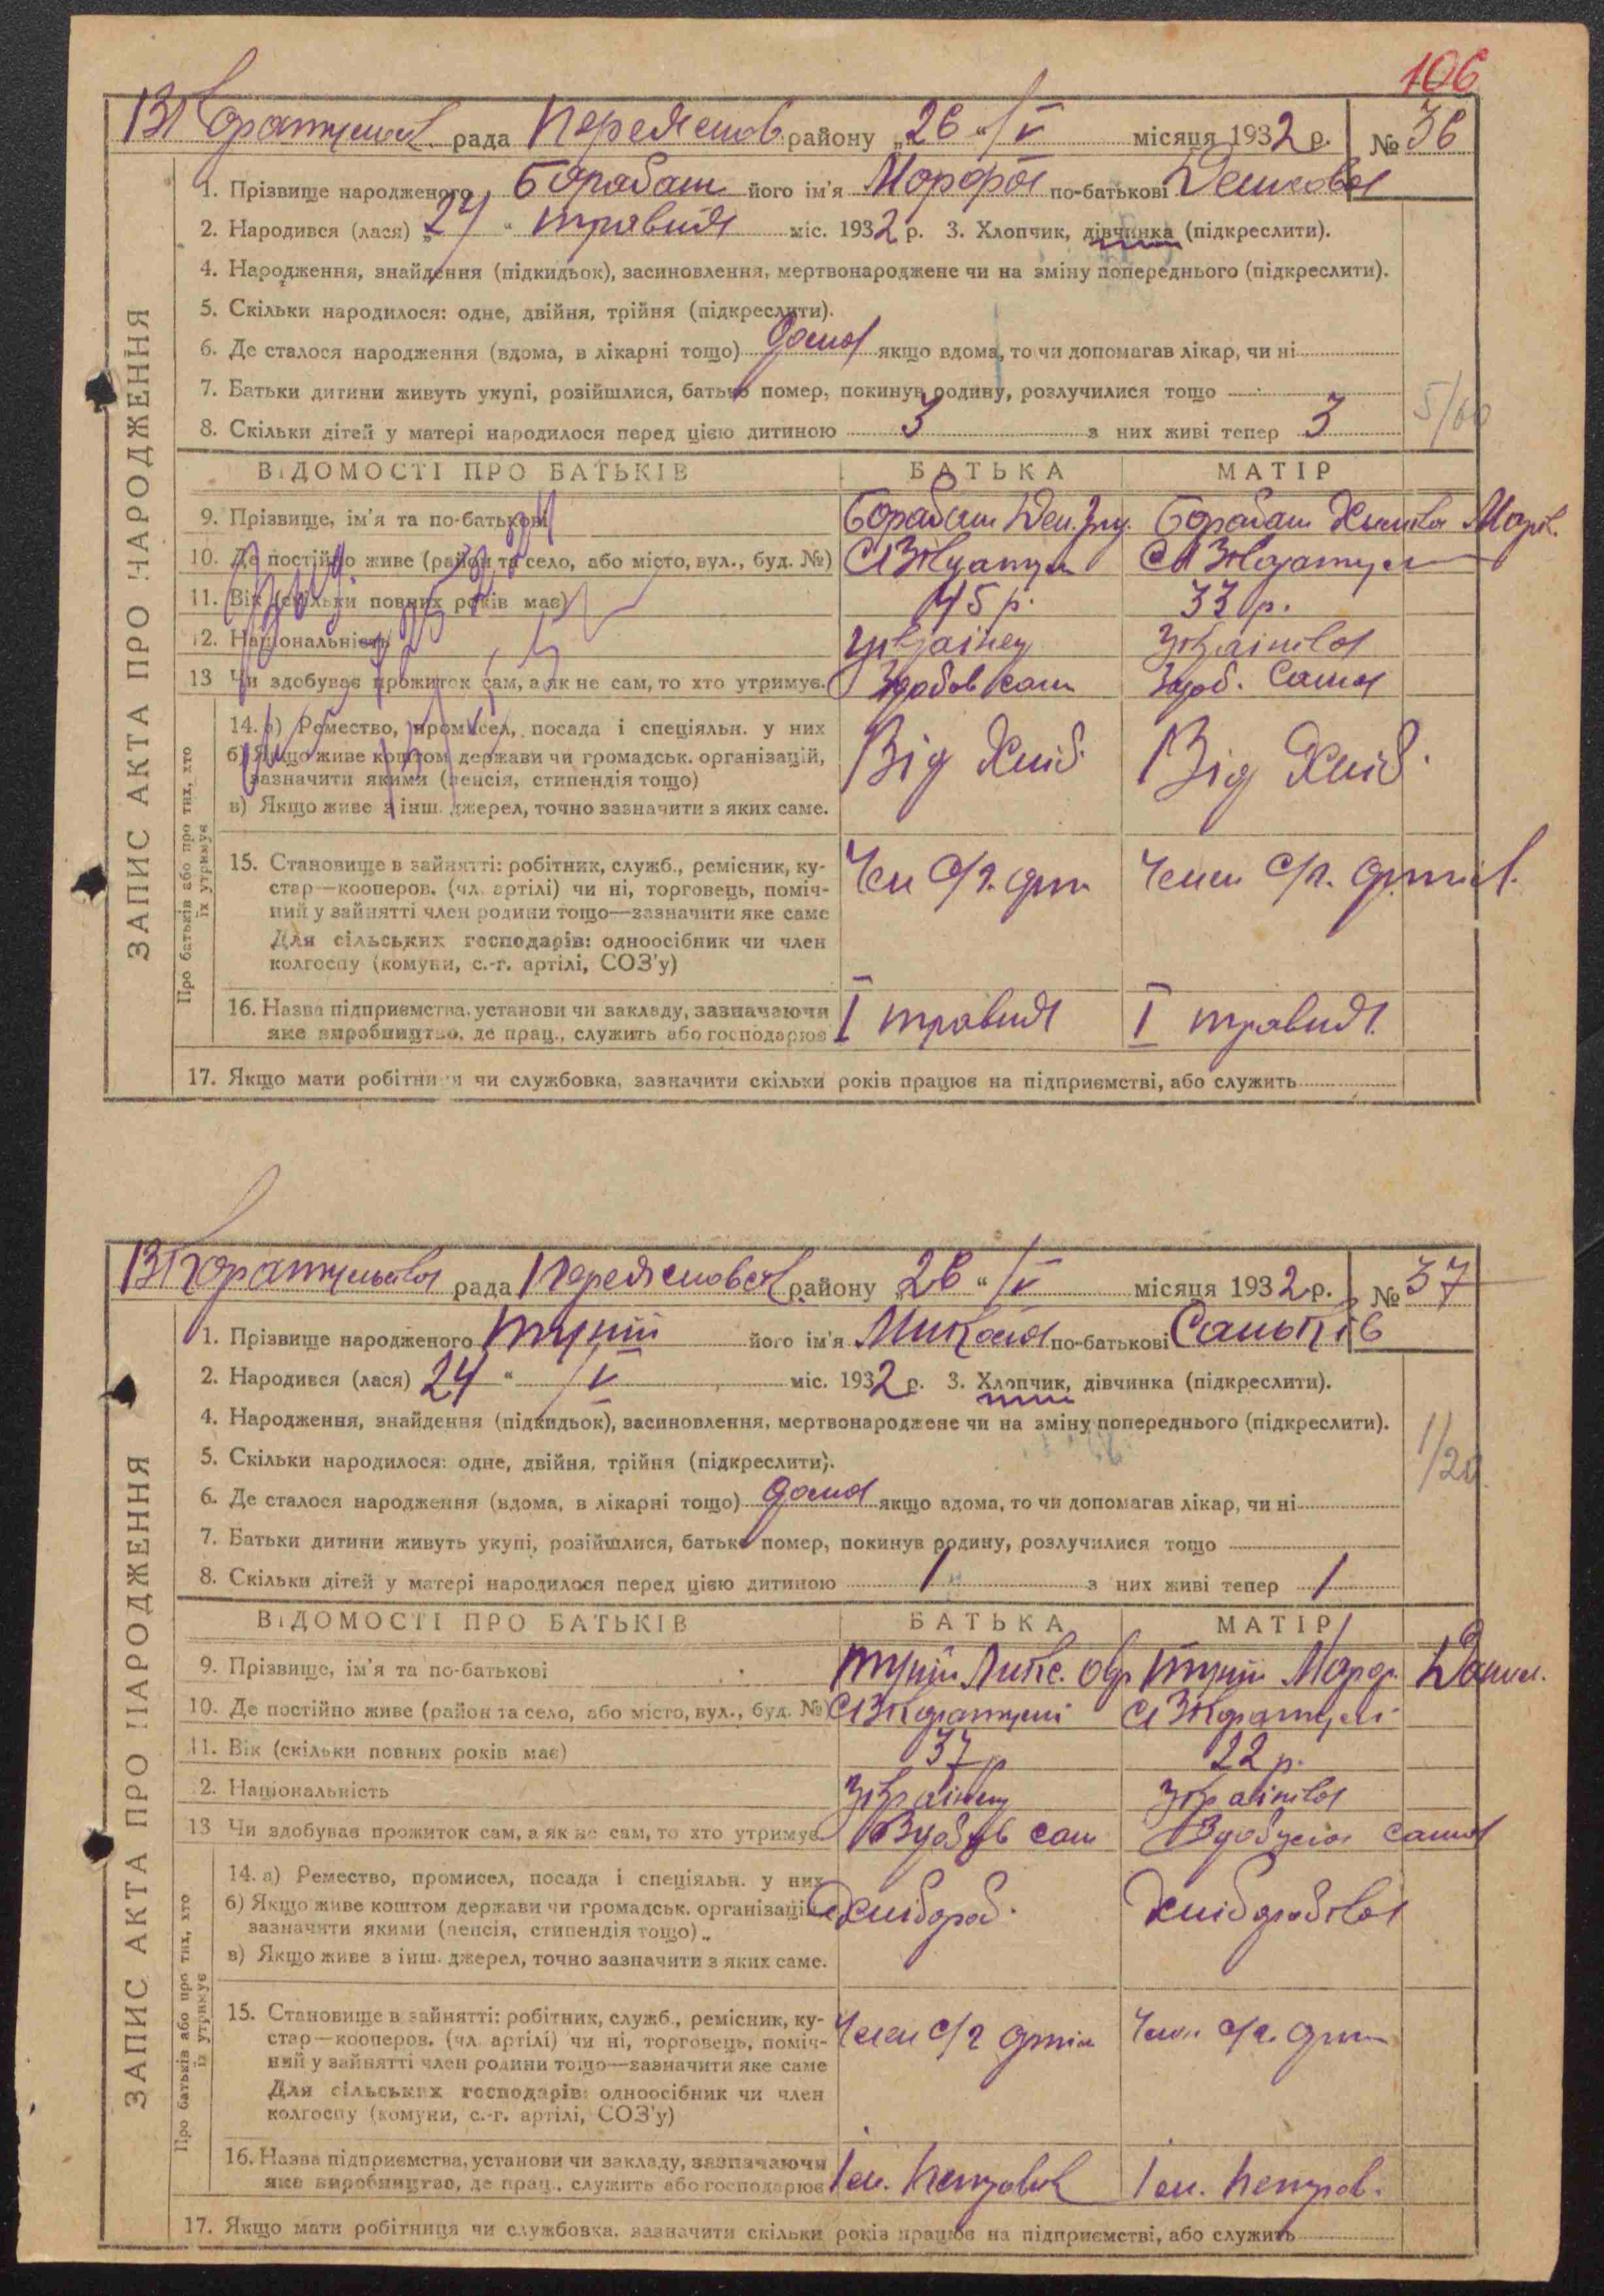 106
рада Переяслов. району „26“ V місяця 1932 р. № 36
1. Прізвище народженого Барабаш його ім'я Марфа по-батькові
2. Народився (лася) „24“ травня міс. 1932 р. 3. Хлопчик, дівчинка (підкреслити).
4. Народження, знайдення (підкидьок), засиновлення, мертвонароджене чи на зміну попереднього (підкреслити).
5. Скільки народилося: одне, двійня, трійня (підкреслити).
6. Де сталося народження (вдома, в лікарні тощо) дома якщо вдома, то чи допомагав лікар, чи ні
7. Батьки дитини живуть укупі, розійшлися, батько помер, покинув родину, розлучилися тощо
8. Скільки дітей у матері народилося перед цією дитиною 3 з них живі тепер 3
5/60
ВІДОМОСТІ ПРО БАТЬКІВ БАТЬКА МАТІР
9. Прізвище, ім'я та по-батькові Барабаш Барабаш
10. Де постійно живе (район та село, або місто, вул., буд. №)
11. Вік (скільки повних років має) 45 р. 33 р.
12. Національність українец Українка
13 Чи здобуває прожиток сам, а як не сам, то хто утримує. Здобов сам Здоб. сама
14. а) Ремество, промисел, посада і спеціяльн. у них
б) Якщо живе коштом держави чи громадськ. організацій,
зазначити якими (пенсія, стипендія тощо)
в) Якщо живе з інш. джерел, точно зазначити з яких саме.
Від Хліб. Від Хліб.
15. Становище в зайнятті: робітник, служб., ремісник, ку-
стар—кооперов. (чл. артілі) чи ні, торговець, поміч-
ний у зайнятті член родини тощо—зазначити яке саме
Для сільських господарів: одноосібник чи член
колгоспу (комуни, с.-г. артілі, СОЗ'у)
Член с/г. арт. Член с/г. артіл.
16. Назва підприємства, установи чи закладу, зазначаючи
яке виробництво, де прац., служить або господарює
І травня І травня
17. Якщо мати робітниця чи службовка, зазначити скільки років працює на підприємстві, або служить
Про батьків або про тих, хто їх утримує
ЗАПИС АКТА ПРО НАРОДЖЕННЯ
рада Переясловск району „26“ V місяця 1932 р. № 37
1. Прізвище народженого Тупій його ім'я Микола по-батькові
2. Народився (лася) 24 “ V міс. 1932 р. 3. Хлопчик, дівчинка (підкреслити).
4. Народження, знайдення (підкидьок), засиновлення, мертвонароджене чи на зміну попереднього (підкреслити).
5. Скільки народилося: одне, двійня, трійня (підкреслити).
6. Де сталося народження (вдома, в лікарні тощо) дома якщо вдома, то чи допомагав лікар, чи ні
7. Батьки дитини живуть укупі, розійшлися, батько помер, покинув родину, розлучилися тощо
8. Скільки дітей у матері народилося перед цією дитиною 1 з них живі тепер 1
1/20
ВІДОМОСТІ ПРО БАТЬКІВ БАТЬКА МАТІР
9. Прізвище, ім'я та по-батькові Тупій Тупій
10. Де постійно живе (район та село, або місто, вул., буд. №)
11. Вік (скільки повних років має) 37 р 22 р.
2. Національність Українец Українка
13 Чи здобуває прожиток сам, а як не сам, то хто утримує. сам сама
14. а) Ремество, промисел, посада і спеціяльн. у них
б) Якщо живе коштом держави чи громадськ. організацій,
зазначити якими (пенсія, стипендія тощо)
в) Якщо живе з інш. джерел, точно зазначити з яких саме.
Хлібороб. Хліборобка
15. Становище в зайнятті: робітник, служб., ремісник, ку-
стар—кооперов. (чл. артілі) чи ні, торговець, поміч-
ний у зайнятті член родини тощо—зазначити яке саме
Для сільських господарів: одноосібник чи член
колгоспу (комуни, с.-г. артілі, СОЗ'у)
Член с/г артіл Член с/г. арт
16. Назва підприємства, установи чи закладу, зазначаючи
яке виробництво, де прац., служить або господарює
Ім. Петровск Ім. Петров.
17. Якщо мати робітниця чи службовка, зазначити скільки років працює на підприємстві, або служить
Про батьків або про тих, хто їх утримує
ЗАПИС АКТА ПРО НАРОДЖЕННЯ